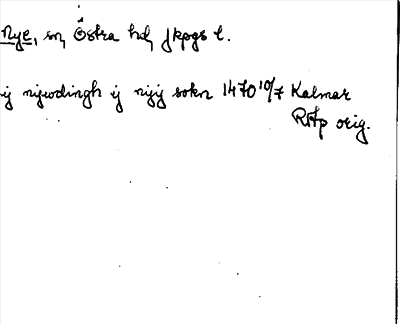 Nye, sn, Östra hd, Jkpgs l.
ij nywdingh ij nyy sokn 1470 10/7 Kalmar
RAp orig.